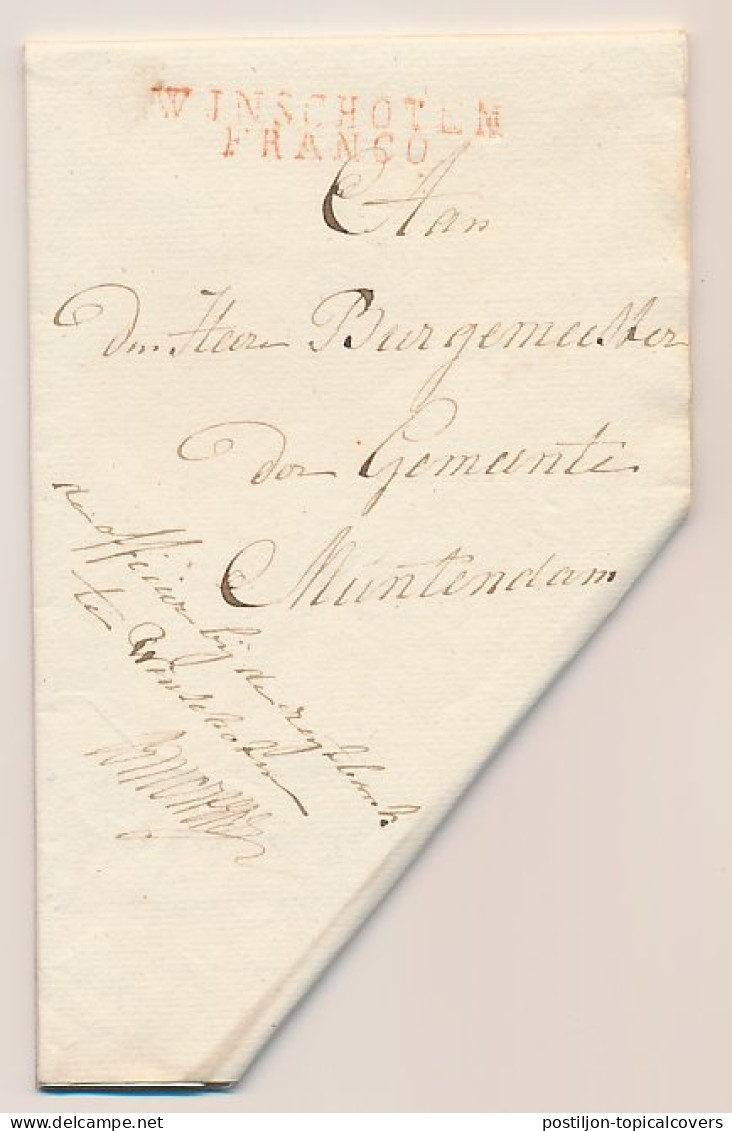 WINSCHOTEN
FRANCO
Aan
Den Heer Burgemeester
der Gemeente
Muntendam
de officier bij de regtbank
te Winschoten
postiljon-topicalcovers